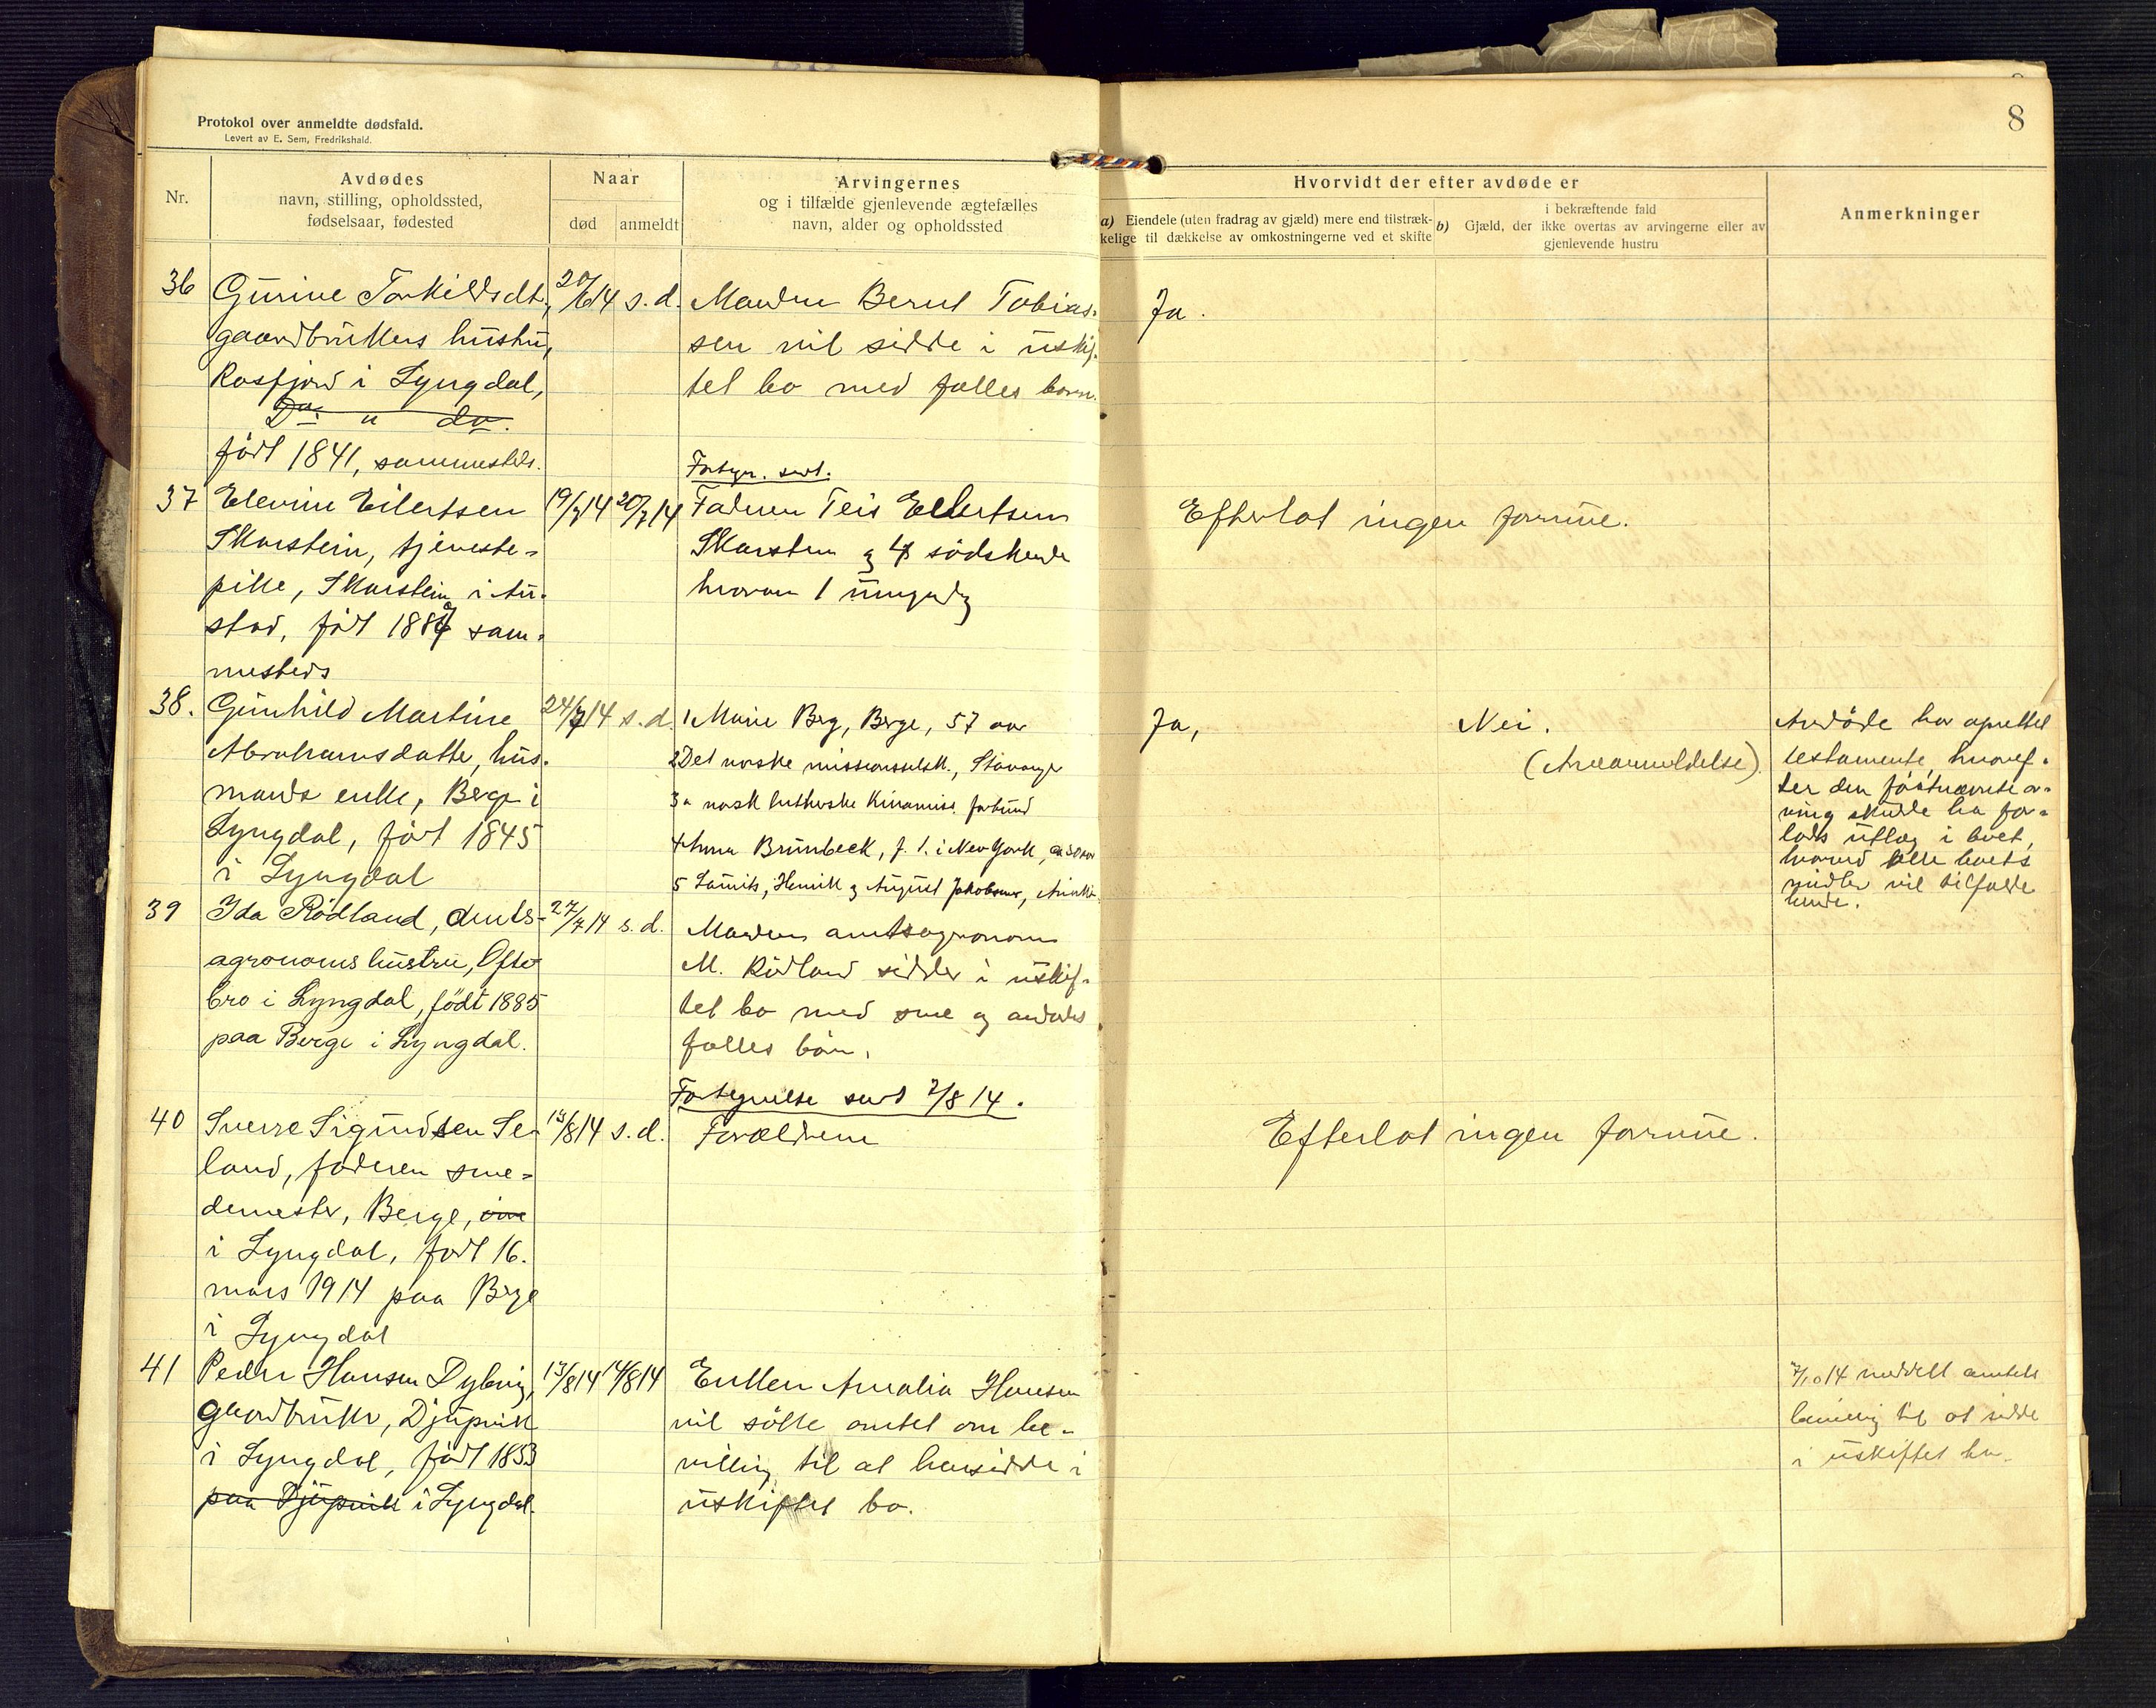 Protokol over anmeldte dødsfald.
Levert av E. Sem, Fredrikshald.
8
Nr.
Avdødes
navn, stilling, opholdssted,
fødselsaar, fødested
Naar
død
anmeldt
Arvingernes
og i tilfælde gjenlevende ægtefælles
navn, alder og opholdssted
Hvorvidt der efter avdøde er
a) Eiendele (uten fradrag av gjæld) mere end tilstræk-
kelige til dækkelse av omkostningerne ved et skifte
i bekræftende fald
b) Gjæld, der ikke overtas av arvingerne eller av
gjenlevende hustru
Anmerkninger
36
Gurine Torkildsdt.,
gaardbrukers hustru,
Rosfjord i Lyngdal,
Do u do.
født 1841, sammesteds.
20/6 14
s. d.
Manden Bernt Tobias-
sen vil sidde i uskif-
tet bo med fælles barn.
Fortegn. sent.
Ja.
37
Elevine Eilertsen
Skarstein, tjeneste-
pike, Skarstein i Au-
stad, født 1887 sam-
mesteds
19/7 14
20/7 14
Faderen Teis Eilertsen
Skarstein og 4 södskende
hvorav 1 umyndig
Efterlot ingen formue.
38.
Gunhild Martine
Abrahamsdatter, hus-
mands enke, Berge i
Lyngdal, født 1845
i Lyngdal
24/7 14
s. d.
1 Marie Berg, Berge, 57 aar
2 Det norske missionsselsk., Stavanger
3 " norsk lutherske Kinamiss. forbund
4 Anna Brunbeck, f. t. i New York, ca 30 aar
5 Laurits, Henrik og August Jakobsen, Amerika
Ja,
Nei.
(Arveanmeldelse)
Avdøde har oprettet
testamente, hvoref-
ter den førstnævnte ar-
ving skulde ha for-
lods utlæg i boet,
hvorved alle boets
midler vil tilfalde
hende.
39
Ida Rødland, amts-
agronoms hustru, Ofte-
bro i Lyngdal, født 1885
paa Berge i Lyngdal.
27/7 14
s. d.
Manden amtsagronom
M. Rødland sidder i uskif-
tet bo med sine og avdødes
fælles børn.
Fortegnelse sent 7/8 14.
40
Sverre Sigurdsen Se-
land, faderen sme-
demester, Berge,
i Lyngdal, født 16.
mars 1914 paa Berge
i Lyngdal
13/8 14
s. d.
Forældrene
Efterlot ingen formue.
41
Peder Hansen Dybvig,
gaardbruker, Djupvik
i Lyngdal, født 1853
paa Djupvik i Lyngdal.
13/8 14
14/8 14
Enken Amalia Hansen
vil søke amtet om be-
villing til at hensidde i
uskiftet bo.
7/10 14 meddelt amtets
bevilling til at sidde
i uskiftet bo.